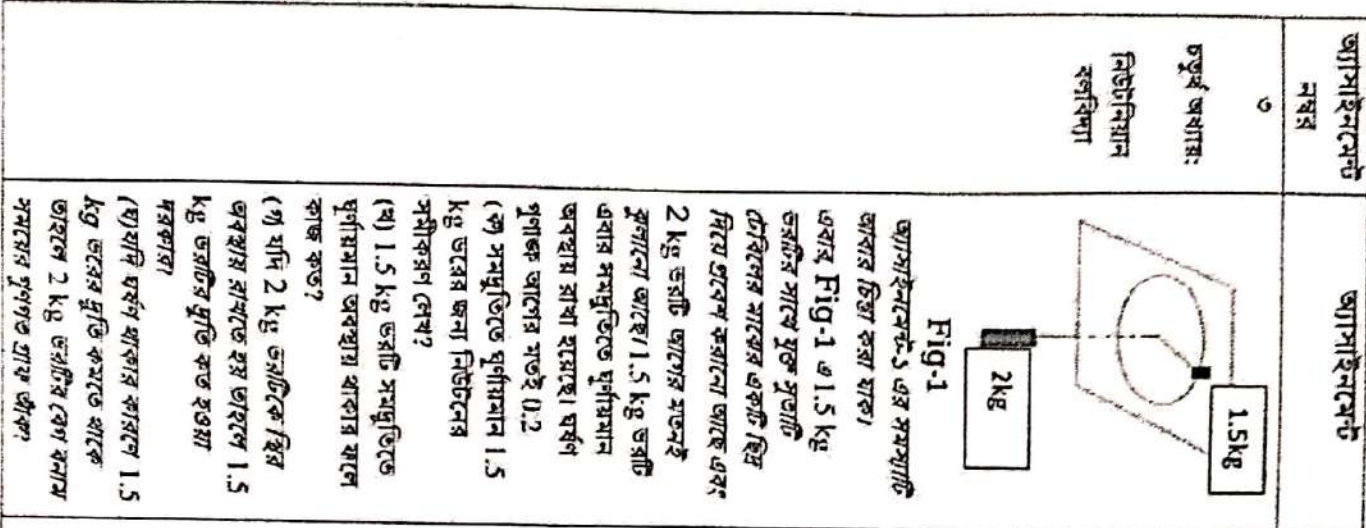 অ্যাসাইনমেন্ট
নম্বর
অ্যাসাইনমেন্ট
৩
চতুর্থ অধ্যায়:
নিউটনিয়ান
বলবিদ্যা
1.5kg
2kg
Fig-1
অ্যাসাইনমেন্ট-১ এর সমস্যাটি
আবার চিন্তা করা যাক।
এবার, Fig-1 এ 1.5 kg
ভরটির সাথে যুক্ত সুতাটি
টেবিলের মাঝের একটি ছিদ্র
দিয়ে প্রবেশ করানো আছে এবং
2 kg ভরটি আগের মতনই
ঝুলানো আছে। 1.5 kg ভরটি
এবার সমদ্রুতিতে ঘূর্ণায়মান
অবস্থায় রাখা হয়েছে। ঘর্ষণ
গুণাঙ্ক আগের মতই 0.2
(ক) সমদ্রুতিতে ঘূর্ণায়মান 1.5
kg ভরের জন্য নিউটনের
সমীকরণ লেখ?
(খ) 1.5 kg ভরটি সমদ্রুতিতে
ঘূর্ণায়মান অবস্থায় থাকার ফলে
কাজ কত?
(গ) যদি 2 kg ভরটিকে স্থির
অবস্থায় রাখতে হয় তাহলে 1.5
kg ভরটির দ্রুতি কত হওয়া
দরকার।
(ঘ) যদি ঘর্ষণ থাকার কারণে 1.5
kg ভরের দ্রুতি কমতে থাকে
তাহলে 2 kg ভরটির বেগ বনাম
সময়ের গুণগত গ্রাফ আঁক?